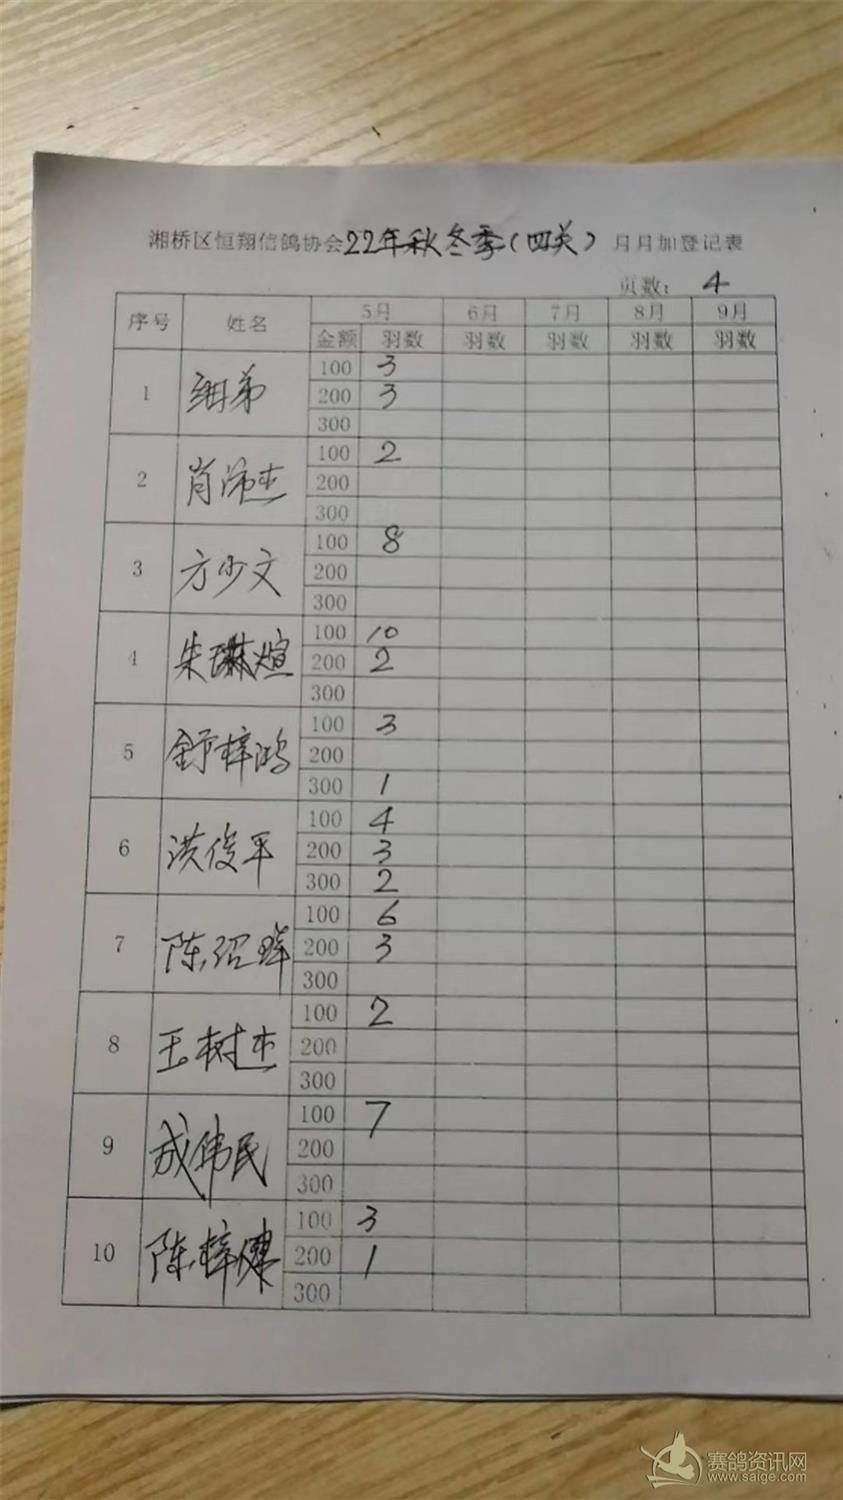 湘桥区恒翔信鸽协会22年秋冬季(四关)月月加登记表
页数: 4
序号 姓名 5月 6月 7月 8月 9月
金额 羽数 羽数 羽数 羽数 羽数
1 细弟 100 3
200 3
300
2 肖沛杰 100 2
200
300
3 方少文 100 8
200
300
4 朱煊 100 10
200 2
300
5 舒梓鸿 100 3
200
300 1
6 洪俊平 100 4
200 3
300 2
7 陈绍 100 6
200 3
300
8 王树杰 100 2
200
300
9 成伟民 100 7
200
300
10 陈梓健 100 3
200 1
300
赛鸽资讯网
www.saige.com